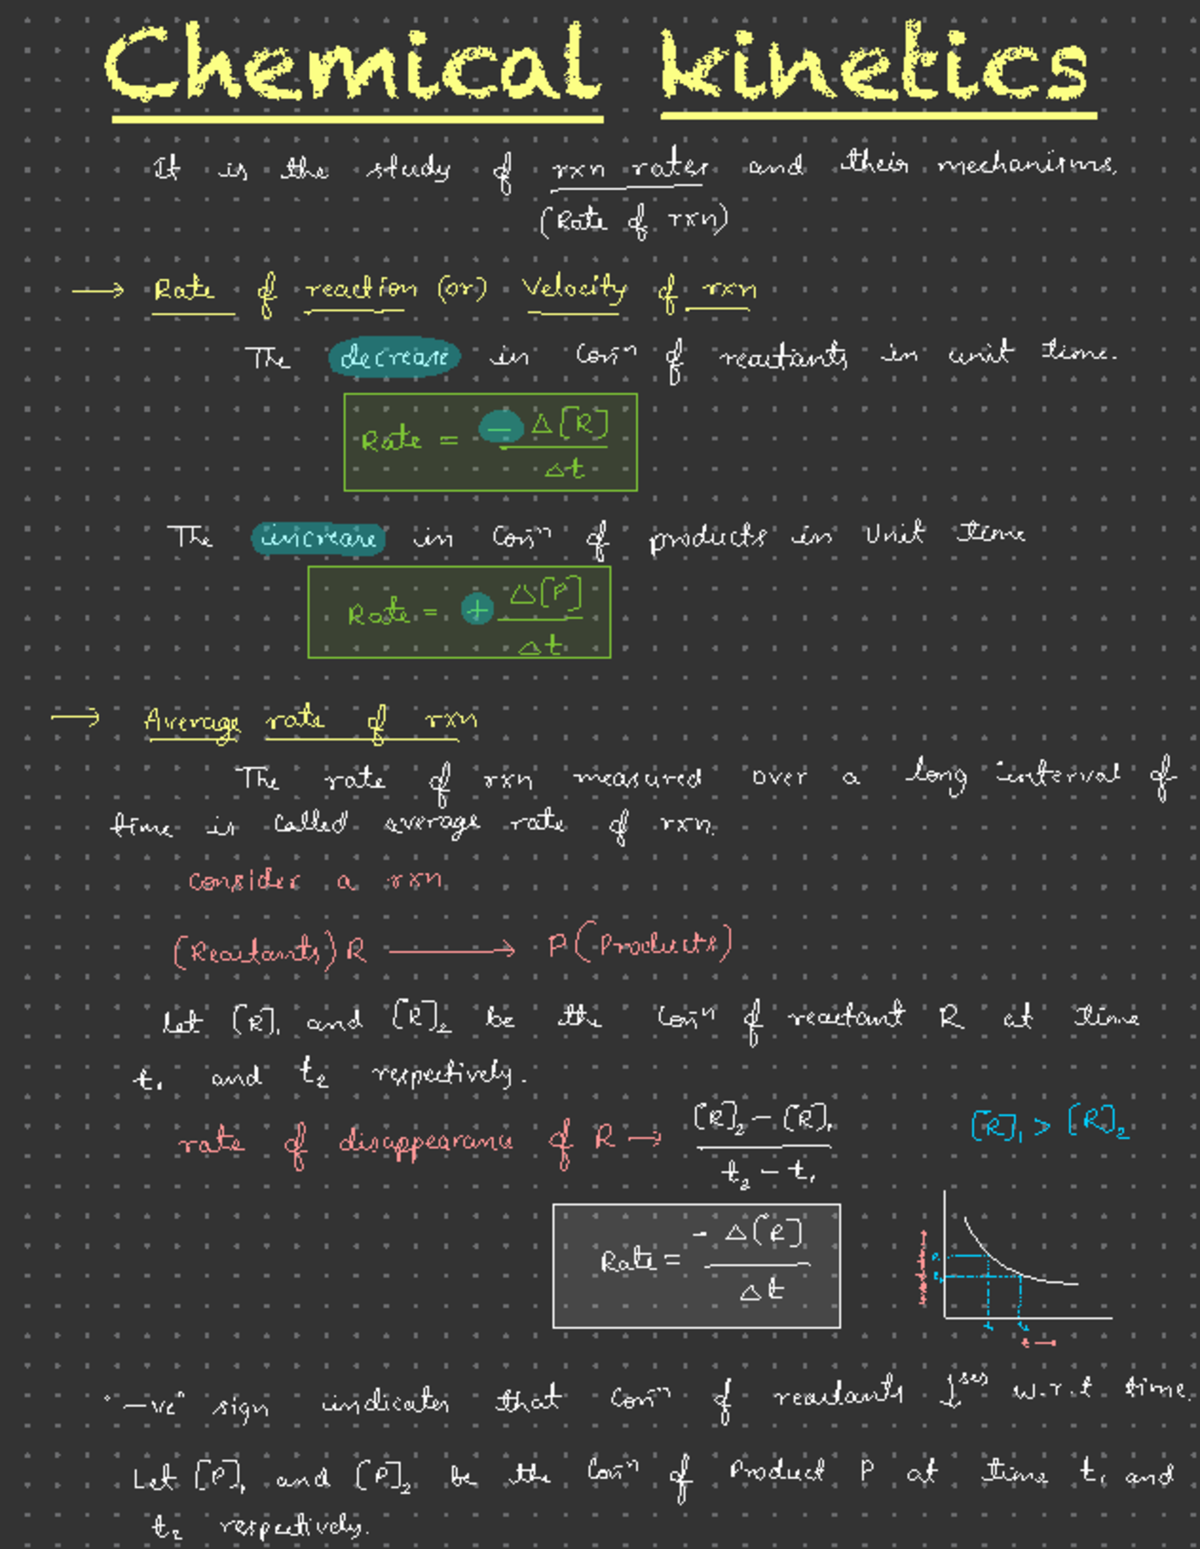 Chemical kinetics
It is the study of rxn rates and their mechanisms.
(Rate of rxn)
→ Rate of reaction (or) Velocity of rxn
The decrease in Conⁿ of reactants in unit time.
Rate = - Δ[R]
Δt
The increase in Conⁿ of products in Unit time
Rate = + Δ[P]
Δt
→ Average rate of rxn
The rate of rxn measured over a long interval of
time is called average rate of rxn.
consider a rxn.
(Reactants) R ⟶ P (Products)
Let [R]₁ and [R]₂ be the Conⁿ of reactant R at time
t₁ and t₂ respectively.
rate of disappearance of R → [R]₂ - [R]₁
t₂ - t₁
[R]₁ > [R]₂
Rate = - Δ[R]
Δt
t →
"-ve" sign indicates that Conⁿ of reactants ↓ses w.r.t time.
Let [P]₁ and [P]₂ be the Conⁿ of Product P at time t₁ and
t₂ respectively.